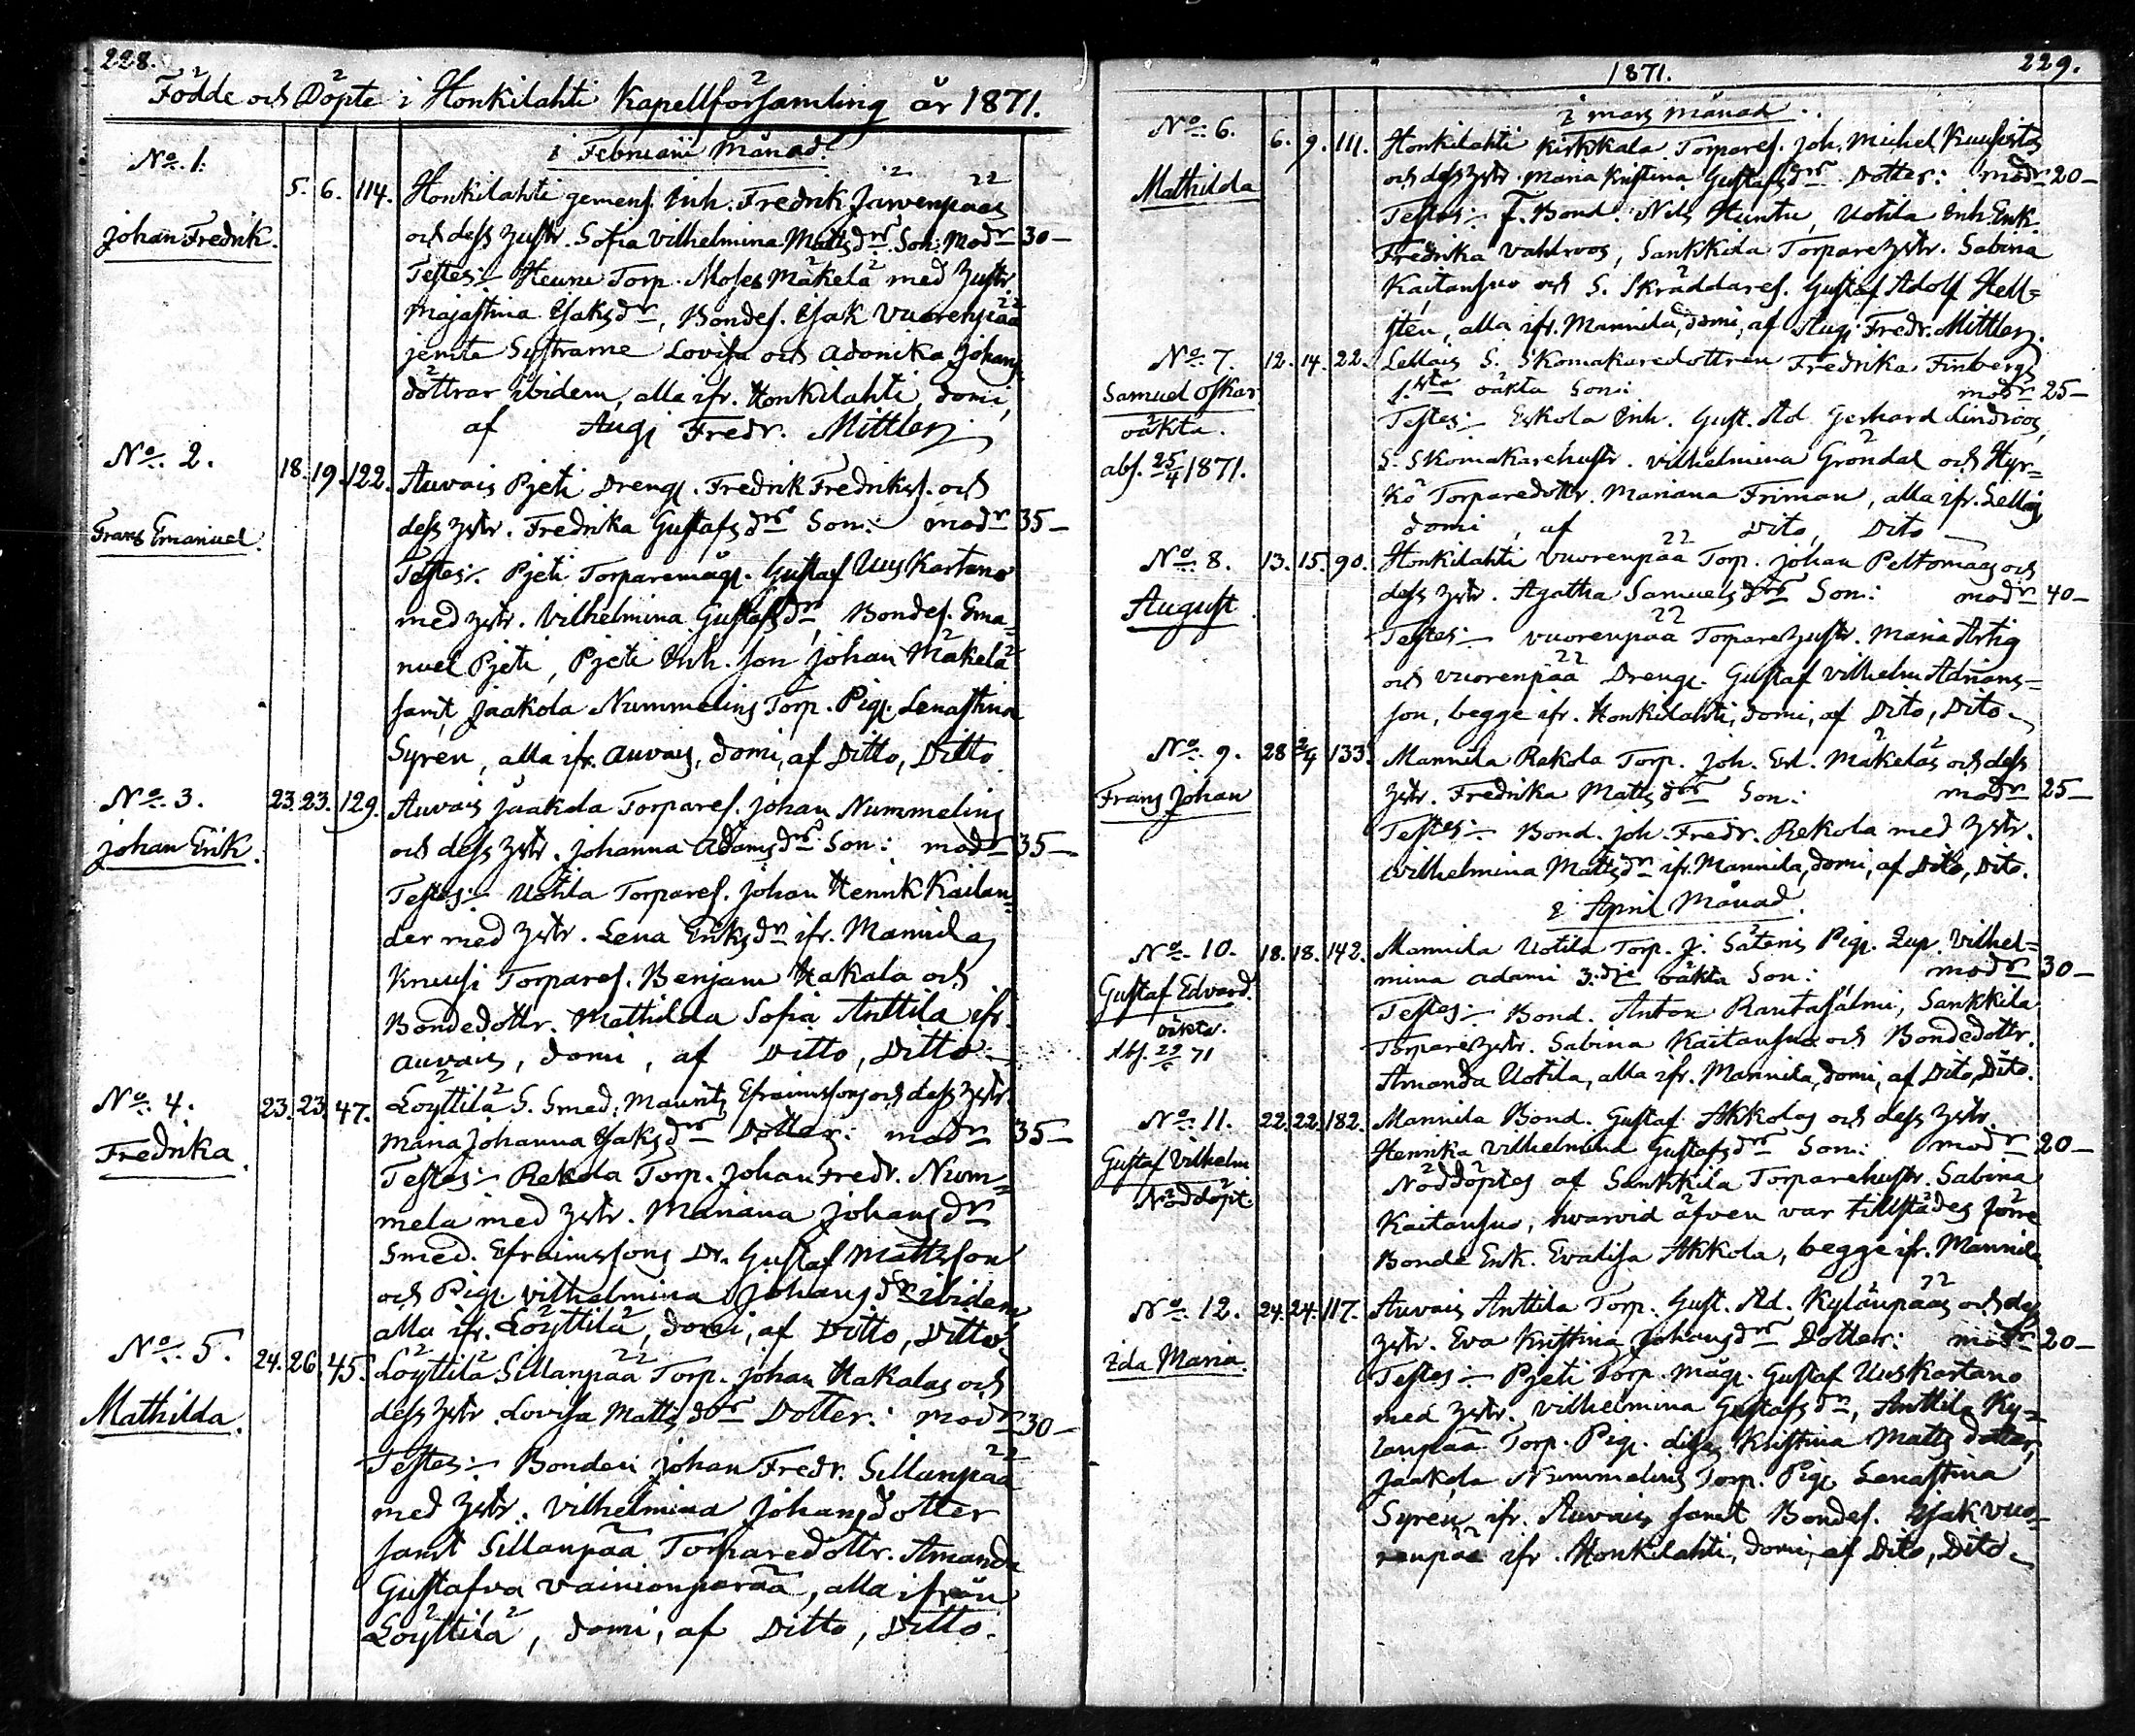 228.
Födde och Döpte i Honkilahti Kapellförsamling år 1871.
i Februarii Månad.
No. 1. 5. 6. 114. Honkilahti gemens. Inh. Fredrik Järvenpääs
Johan Fredrik. och dess hustr. Sofia Vilhelmina Mattsdrs Son: Modr 30 —
Testes: Heure Torp. Moses Mäkelä med hustr.
Majastina Isaksdr, Bondes. Isak Vuorenpää
jemte Systrarne Lovisa och Adonika Johans
döttrar ibidem, alla ifr. Honkilahti, domi,
af Aug. Fredr. Mittler
No. 2. 18. 19. 122. Auvais Pjeti Dreng. Fredrik Fredrikss. och
Frans Emanuel. dess hstr. Fredrika Gustafsdrs Son: modr 35 —
Testes: Pjeti Torparemåg. Gustaf Uuskartano
med hstr. Vilhelmina Gustafsdr, Bondes. Ema=
nuel Pjeti, Pjeti Inh. son Johan Mäkelä
samt Jaakola Nummelins Torp. Pig. Lenastina
Syren, alla ifr. Auvais, domi, af Ditto, Ditto
No. 3. 23. 23. 129. Auvais Jaakola Torpares. Johan Nummelins
Johan Erik. och dess hstr. Johanna Adamsdrs Son: modr 35 —
Testes: Uotila Torpares. Johan Henrik Kailan=
der med hstr. Lena Eriksdr ifr. Mannila,
Knuusi Torpares. Benjam Hakala och
Bondedottr. Mathilda Sofia Anttila ifr.
Auvais, domi, af Ditto, Ditto —
No. 4. 23. 23. 47. Löyttilä S. Smed. Maurits Efraimssons och dess hstr.
Fredrika. Maria Johanna Isaksdrs Dotter: modr 35 —
Testes: Rekola Torp. Johan Fredr. Num=
mela med hstr. Mariana Johansdr
Smed. Efraimssons Dr. Gustaf Mattsson
och Pig. Vilhelmina Johansdr ibidem
alla ifr. Löyttilä, domi, af Ditto, Ditto.
No. 5. 24. 26. 45. Löyttilä Sillanpää Torp. Johan Hakalas och
Mathilda. dess hstr. Lovisa Mattsdrs Dotter: modr 30 —
Testes: Bonden Johan Fredr. Sillanpää
med hstr. Vilhelmina Johansdotter
samt Sillanpää Torparedottr. Amanda
Gustafva Vainionperää, alla ifrån
Löyttilä, domi, af Ditto, Ditto.
1871. 229.
i Mars Månad.
No. 6. 6. 9. 111. Honkilahti Kirkkala Torpares. Joh. Michel Kuusistos
Mathilda och dess hstr. Maria Kristina Gustafsdrs Dotter: modr 20 —
Testes: f. Bond. Nils Huntu, Uotila Inh. Enk.
Fredrika Vahlroos, Sankkila Torparehstr. Sabina
Kaitansuo och S. Skräddares. Gustaf Adolf Hell=
sten, alla ifr. Mannila, domi, af Aug. Fredr. Mittler.
No. 7. 12. 14. 22. Lellais S. Skomakaredottren Fredrika Finbergs
Samuel Oskar 1.sta oäkta Son: modr 25 —
oäkta. Testes: Eskola Inh. Gust. Ad. Gerhard Lindroos,
abs. 25/4 1871. S. Skomakarehustr. Vilhelmina Gröndal och Hyr=
kö Torparedottr. Mariana Friman, alla ifr. Lellais,
domi, af Dito, Dito —
No. 8. 13. 15. 90. Honkilahti Vuorenpää Torp. Johan Peltomaas och
August dess hstr. Agatha Samuelsdrs Son: modr 40 —
Testes: Vuorenpää Torparehustr. Maria Artig
och Vuorenpää Dreng. Gustaf Vilhelm Adrians=
son, begge ifr. Honkilahti, domi, af Dito, Dito.
No. 9. 28 2/4 133. Mannila Rekola Torp. Joh. Erl. Mäkeläs och dess
Frans Johan hstr. Fredrika Mattsdrs Son: modr 25 —
Testes: Bond. Joh. Fredr. Rekola med hstr.
Vilhelmina Mattsdr ifr. Mannila, domi, af Dito, Dito.
i April Månad.
No. 10. 18. 18. 142. Mannila Uotila Torp. J. Säteris Pig. Vilhel=
Gustaf Edvard. mina Adami 3.dje oäkta Son: modr 30 —
oäkta. Testes: Bond. Anton Rantasalmi, Sankkila
Abs. 29/5 71 Torparehstr. Sabina Kaitansuo och Bondedottr.
Amanda Uotila, alla ifr. Mannila, domi, af Dito, Dito.
No. 11. 22. 22. 182. Mannila Bond. Gustaf Akkolas och dess hstr.
Gustaf Vilhelm Henrika Vilhelmina Gustafsdrs Son: modr 20 —
Nöddöpt. Nöddöptes af Sankkila Torparehustr. Sabina
Kaitansuo, hwarvid äfven var tillstädes förre
Bonde Enk. Evalisa Akkola, begge ifr. Mannila
No. 12. 24. 24. 117. Auvais Anttila Torp. Gust. Ad. Kylänpääs och dess
Ida Maria. hstr. Eva Kristina Johansdrs Dotter: modr 20 —
Testes: Pjeti Torp. måg. Gustaf Uuskartano
med hstr. Vilhelmina Gustafsdr, Anttila Ky=
länpää Torp. Pig. Lisa Kristina Matts dotter,
Jaakola Nummelins Torp. Pig. Lenastina
Syren, ifr. Auvais samt Bondes. Isak Vuo=
renpää ifr. Honkilahti, domi, af Dito, Dito.